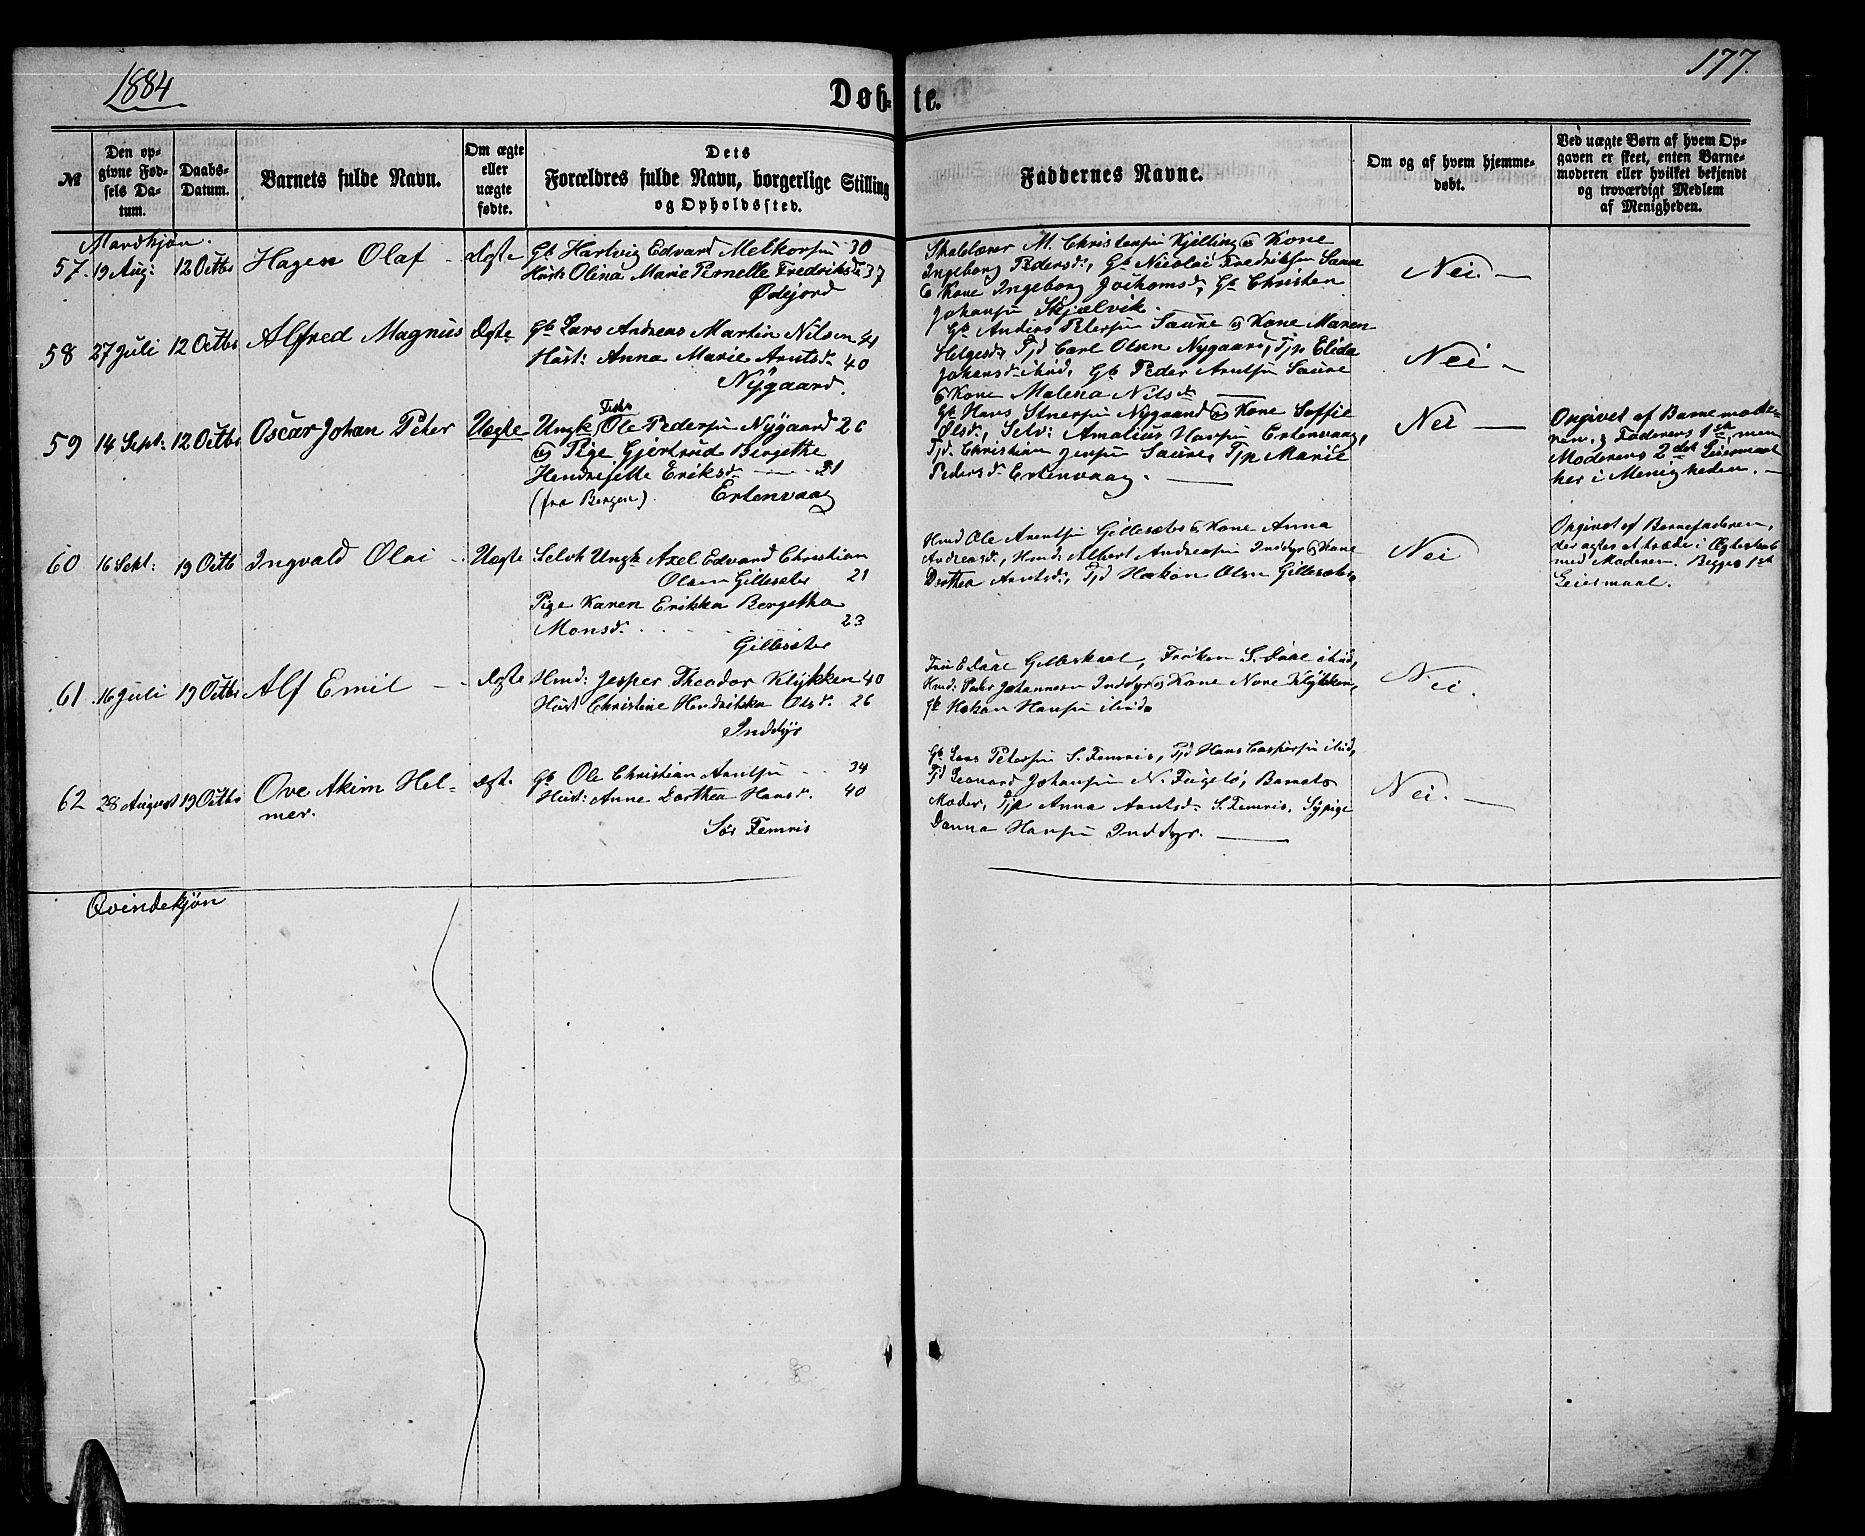 1884
177.
Døb-te.
№
Den opgivne Fødsels Datum.
Daabs-Datum.
Barnets fulde Navn.
Om ægte eller uægte fødte.
Dets Forældres fulde Navn, borgerlige Stilling og Opholdssted.
Faddernes Navne.
Om og af hvem hjemmedøbt.
Ved uægte Børn af hvem Opgaven er skeet, enten Barnemoderen eller hvilket bekjendt og troværdigt Medlem af Menigheden.
Mandkjøn.
57. 19 Aug: 12 Octbr Hagen Olaf - Ægte
Gb Hartvig Edvard Melkorsen 30
Hust: Olina Marie Pernelle Fredriksd. 37
Ødejord
Skolelærer M. Christensen Kjelling og Kone
Ingeborg Pedersd., Gb Nicolai Fredriksen Saure
& Kone Ingeborg Jochomsd., Gb Christen
Johansen Skjælvik.
Nei. —
58 27 Juli 12 Octbr Alfred Magnus Ægte
Gb Lars Andreas Martin Nilsen 41
Hust: Anna Marie Arntsd. 40
Nygaard.
Gb Anders Petersen Saure og Kone Maren
Helgesd., Tjd Carl Olsen Nygaard, Tjp Elida
Johansd. ibid, Gb Peder Arntsen Saure
& Kone Malena Nilsd. —
Nei -
59 14 Sept: 12 Octbr Oscar Johan Peter Uægte
Ungk Fisker Ole Pedersen Nygaard 26
og Pige Gjertrud Bergithe
Hendrijette Eriksd. - - - 21
(fra Bergen). Ertenvaag
Gb Hans Stnersen Nygaard og Kone Soffie
Olsd., Selv: Amalius Hansen Ertenvaag,
Tjd. Christian Jensen Saure, Tjp Marie
Pedersd. Ertenvaag. —
Nei —
Opgivet af Barnemoderen,
Faderens 1ste, men
Moderens 2det Leiermaal
her i Menigheden. —
60 16 Sept: 19 Octb Ingvald Olai - Uægte
Selvk Ungk Axel Edvard Christian
Olsen Gillesæter 21
Pige Karen Erikka Bergetha
Monsd. . . . . 23
Gillesæter
Hmd Ole Arntsen Gillesæter & Kone Anna
Andreasd., Hmd: Albert Andreasen Inddyr og Kone
Dorthea Arntsd., Tjd Hakon Olsen Gillesæter
Nei
Opgivet af Barnefaderen,
der agter at træde i Ægteskab
med Moderen. Begges 1ste
Leiermaal.
61 16 Juli 19 Octbr Alf Emil - Ægte
Hmd: Jesper Theodor Klykken 40
Hust Christine Hendrikka Olsd. 26
Inddyr
Fru E Daae Gilleskaal, Frøken S. Daae ibid,
Hmd: Peder Johannesen Inddyr og Kone Nove Klykken,
Gb Hakon Hansen ibid.
Nei.
62 28 August 19 Octbr Ove Akim Hel-
mer.
Ægte
Gb Ole Christian Arntsen - - 34
Hust: Anne Dorthea Hansd. 40
Sør Femris
Gb Lars Petersen S. Femris, Tjd Hans Caspersen ibid,
Tjd Leonard Johansen N. Fugelø, Barnets
Moder, Tjp Anna Arntsd. S. Femris, Sypige
Danna Hansen Inddyr. —
Nei. —
Qvindekjøn